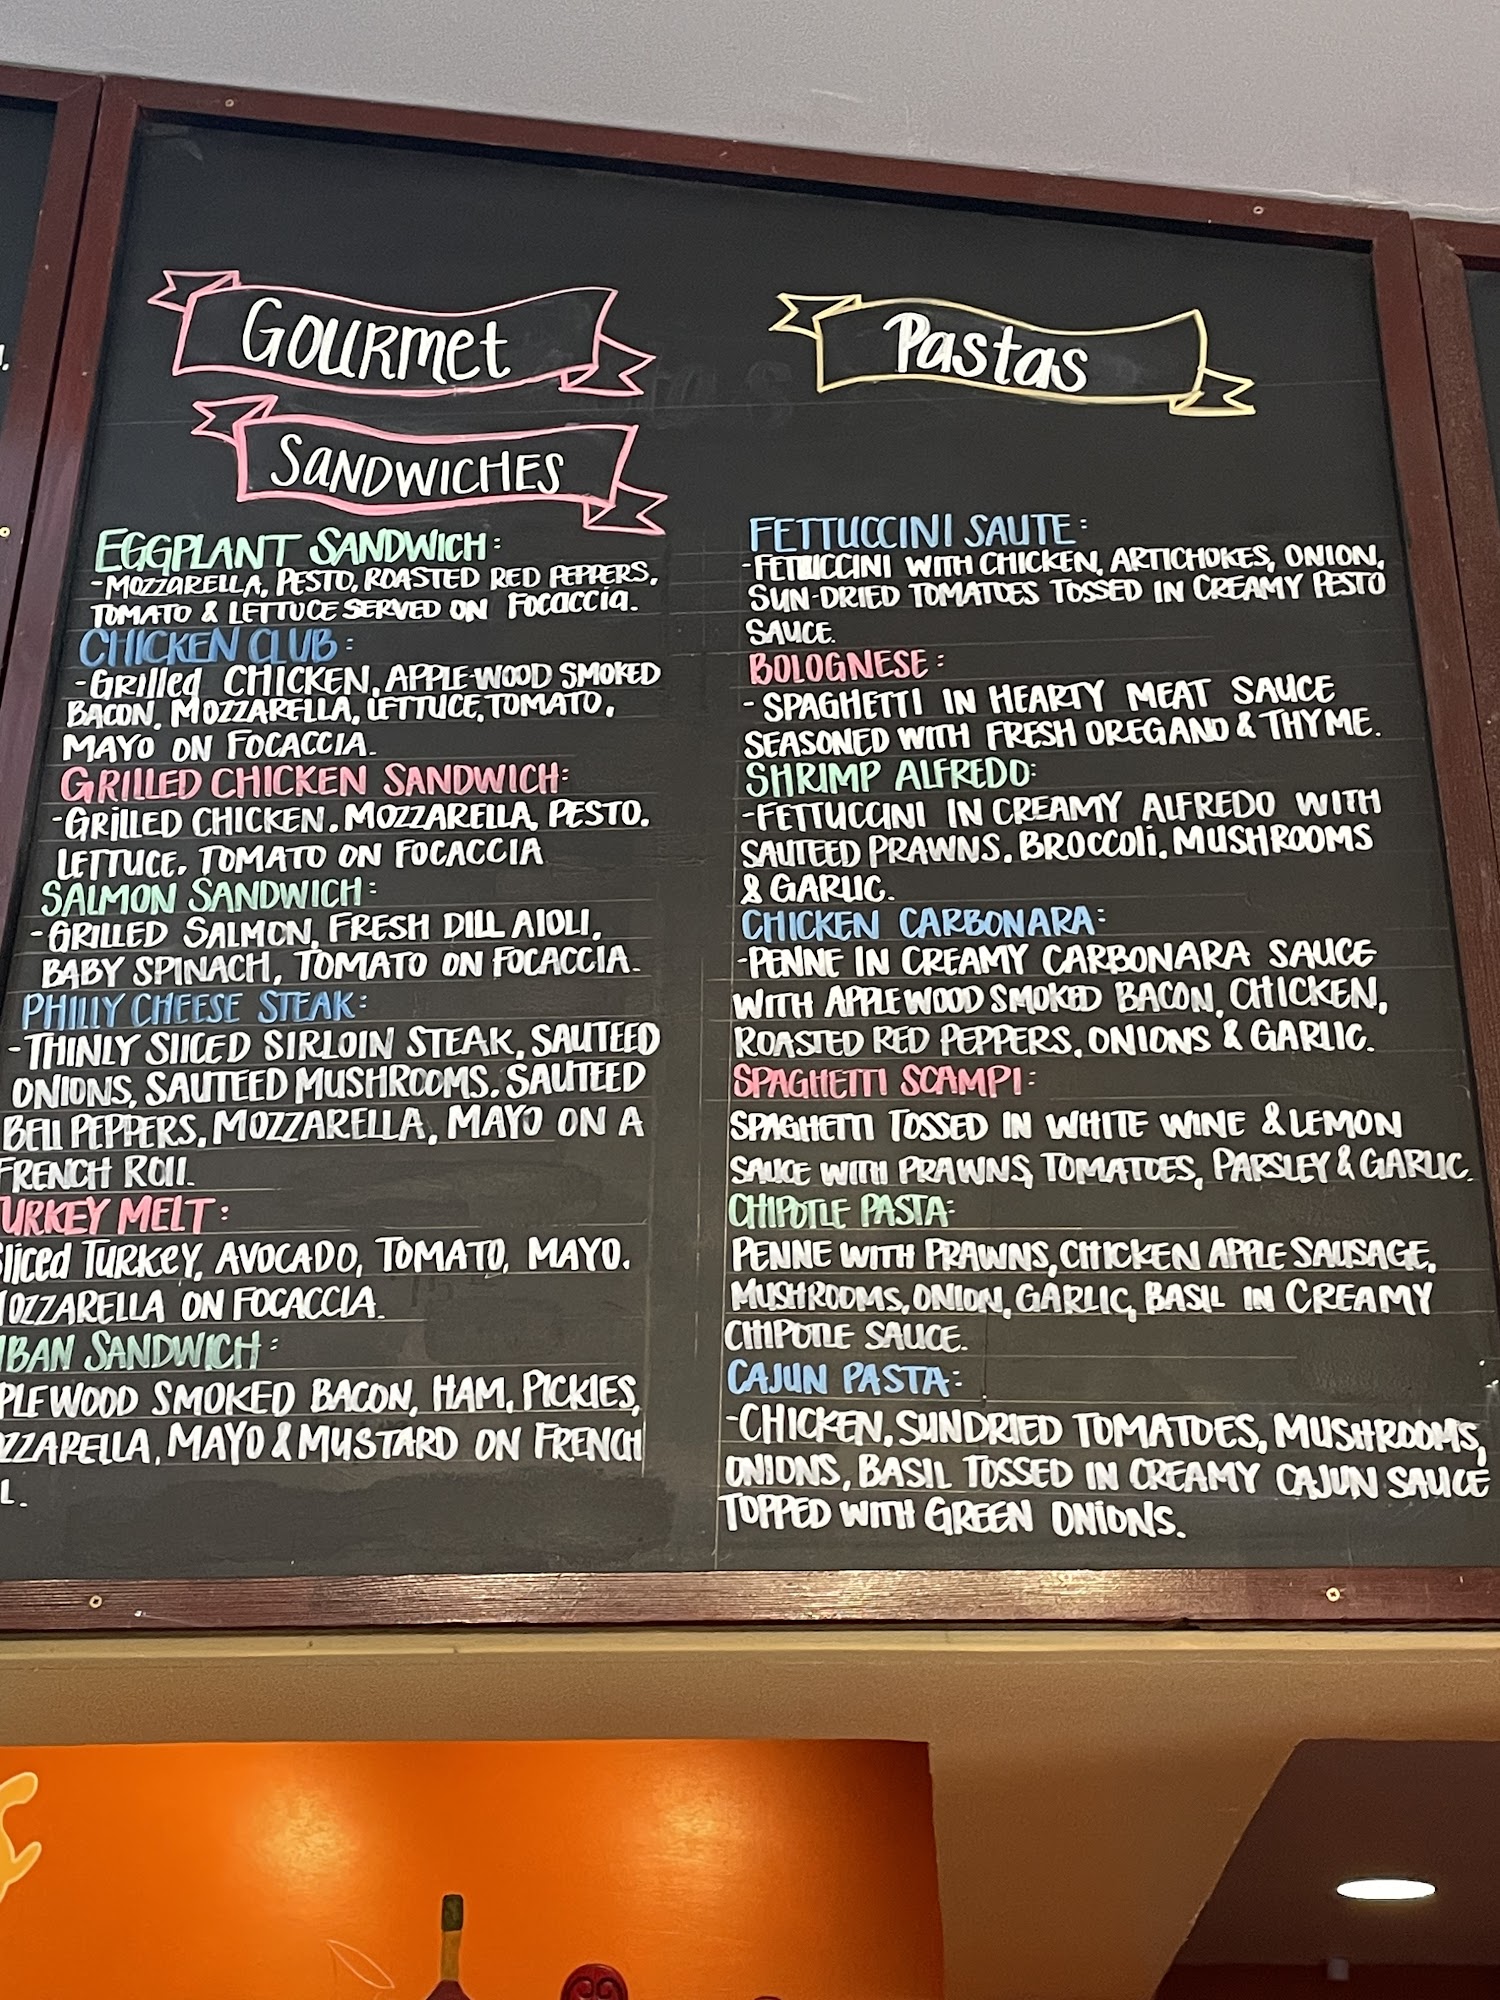 Gourmet
Sandwiches
EGGPLANT SANDWICH:
-MOZZARELLA, PESTO, ROASTED RED PEPPERS,
TOMATO & LETTUCE SERVED ON Focaccia.
CHICKEN CLUB:
-Grilled CHICKEN, APPLE-WOOD SMOKED
BACON, MOZZARELLA, LETTUCE, TOMATO,
MAYO ON FOCACCIA.
GRILLED CHICKEN SANDWICH:
-GRILLED CHICKEN, MOZZARELLA, PESTO,
LETTUCE, TOMATO ON FOCACCIA
SALMON SANDWICH:
-GRILLED SALMON, FRESH DILL AIOLI,
BABY SPINACH, TOMATO ON FOCACCIA.
PHILLY CHEESE STEAK:
-THINLY SLICED SIRLOIN STEAK, SAUTEED
ONIONS, SAUTEED MUSHROOMS, SAUTEED
BELL PEPPERS, MOZZARELLA, MAYO ON A
FRENCH ROLL.
URKEY MELT:
Sliced TURKEY, AVOCADO, TOMATO, MAYO,
OZZARELLA ON FOCACCIA.
BAN SANDWICH:
PLEWOOD SMOKED BACON, HAM, PICKLES,
ZZARELLA, MAYO & MUSTARD ON FRENCH
L.
Pastas
FETTUCCINI SAUTE:
-FETTUCCINI WITH CHICKEN, ARTICHOKES, ONION,
SUN-DRIED TOMATOES TOSSED IN CREAMY PESTO
SAUCE.
BOLOGNESE:
- SPAGHETTI IN HEARTY MEAT SAUCE
SEASONED WITH FRESH OREGANO & THYME.
SHRIMP ALFREDO:
-FETTUCCINI IN CREAMY ALFREDO WITH
SAUTEED PRAWNS, BROCCOLI, MUSHROOMS
& GARLIC.
CHICKEN CARBONARA:
-PENNE IN CREAMY CARBONARA SAUCE
WITH APPLEWOOD SMOKED BACON, CHICKEN,
ROASTED RED PEPPERS, ONIONS & GARLIC.
SPAGHETTI SCAMPI:
SPAGHETTI TOSSED IN WHITE WINE & LEMON
SAUCE WITH PRAWNS, TOMATOES, PARSLEY & GARLIC.
CHIPOTLE PASTA:
PENNE WITH PRAWNS, CHICKEN APPLE SAUSAGE,
MUSHROOMS, ONION, GARLIC, BASIL IN CREAMY
CHIPOTLE SAUCE.
CAJUN PASTA:
-CHICKEN, SUNDRIED TOMATOES, MUSHROOMS,
ONIONS, BASIL TOSSED IN CREAMY CAJUN SAUCE
TOPPED WITH GREEN ONIONS.